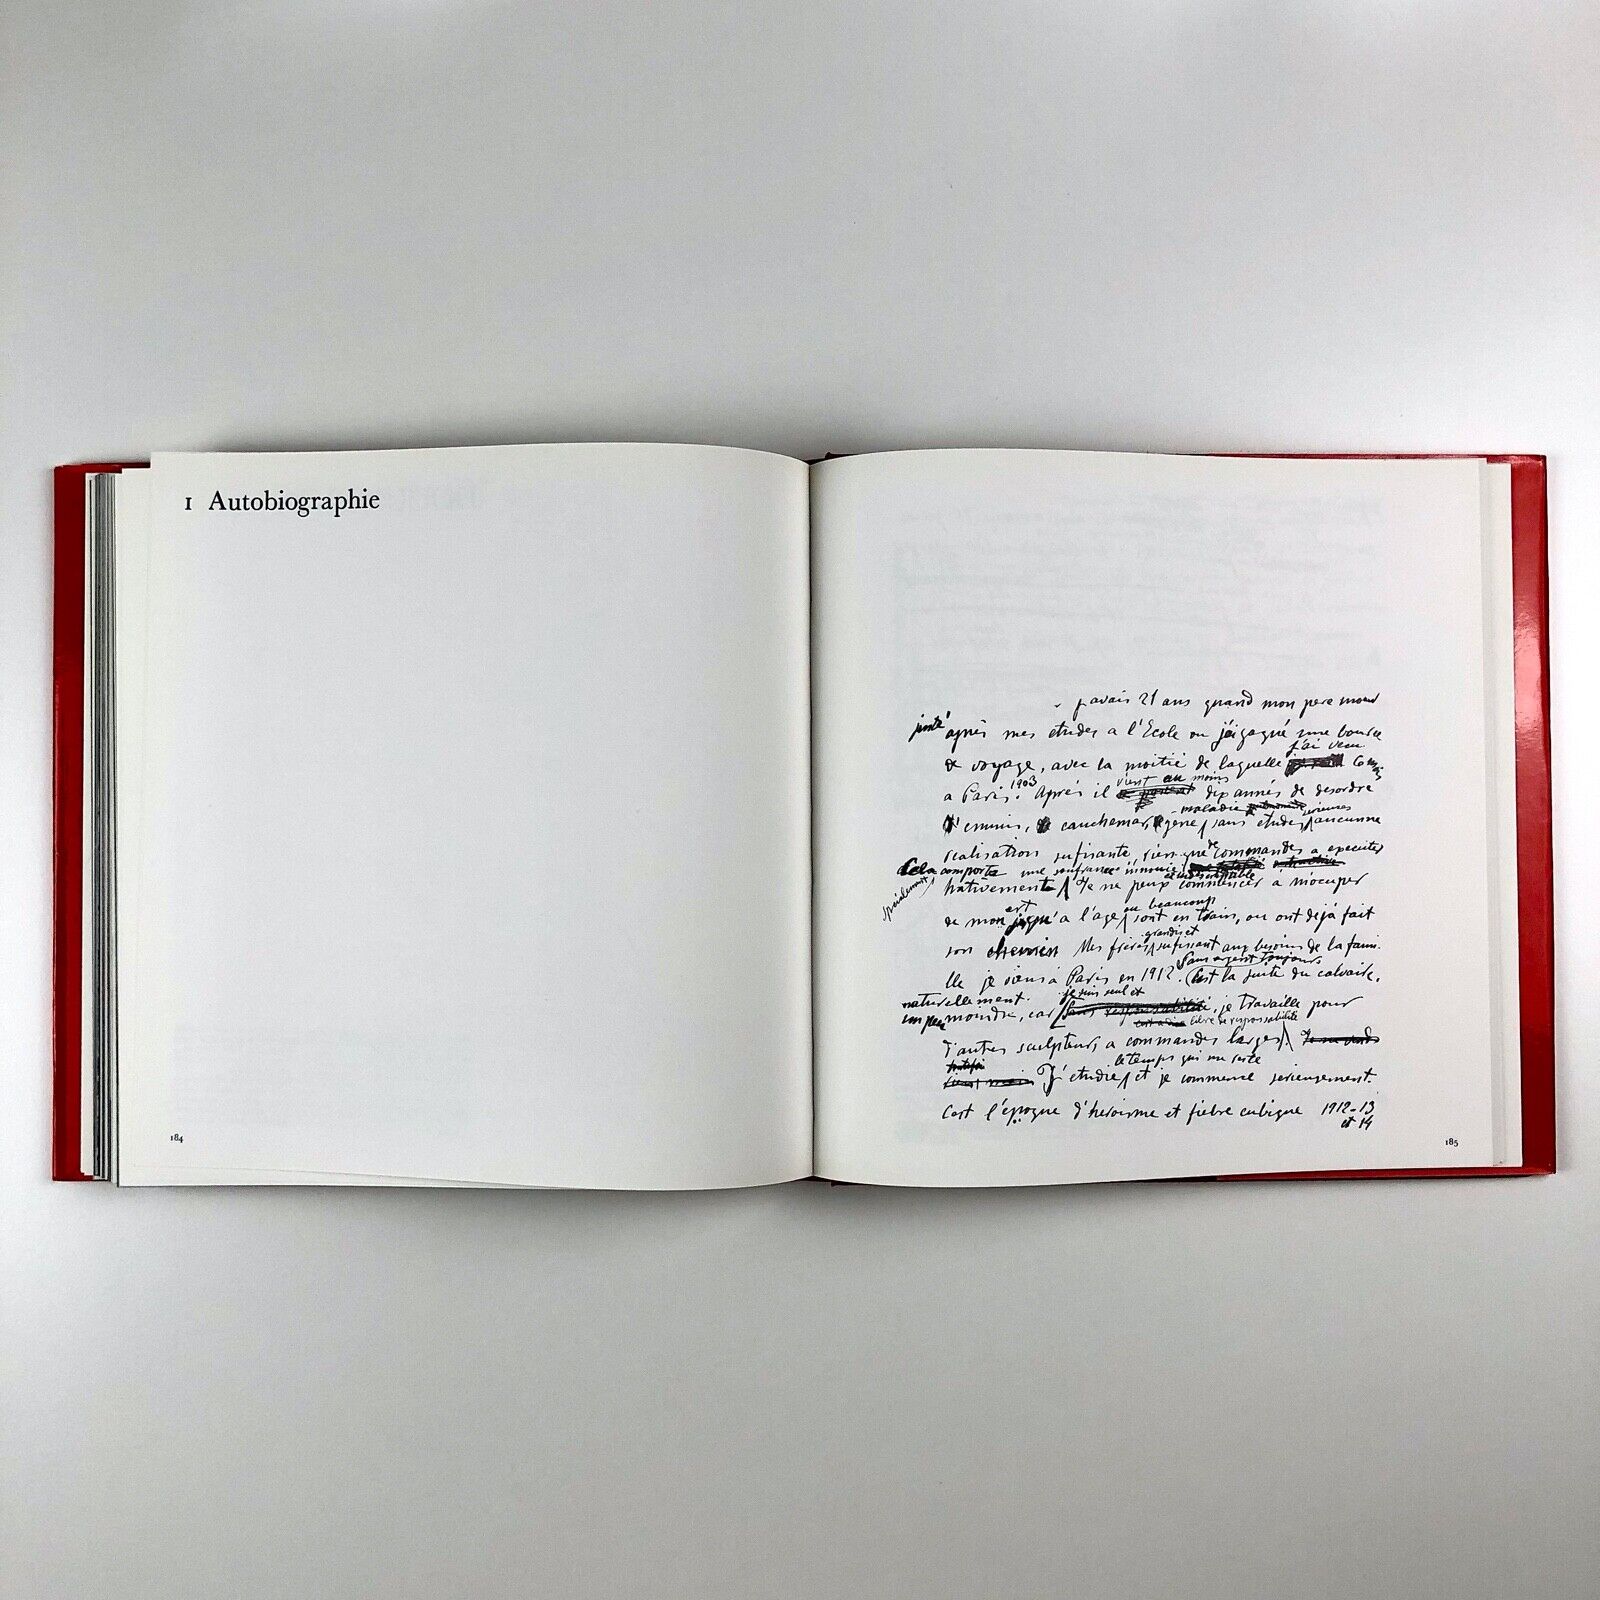 1 Autobiographie
184
j'avais 21 ans quand mon pere meurt
juste après mes etudes a l'Ecole ou j'ai gagné une bourse
j'ai venu
de voyage, avec la moitié de laquelle
a Paris. 1903 Après il vient au moins dix années de desordre
maladie serieuses
d'ennuis, de cauchemar, gène, sans etudes, aucunne
realisation sufisante, rien que de commandes a executer
Cela comporte une soufrance innouie
hativement Je ne peux commencer à m'ocuper
specialement
est ou beaucoup
de mon a l'age, sont en train, ou ont déjà fait
grandis et
son chemin Mes frères, sufisant aux besoins de la fami-
Sans argent toujours
lle je viens à Paris en 1912. C'est la suite du calvaire,
naturellement. je suis seul et
un peu moindre, car sans responsabilité, je travaille pour
c'est a dire libre de responsabilité
d'autres sculpteurs, a commandes larges.
le temps qui me reste
J'etudie, et je commence serieusement.
C'est l'époque d'heroisme et fiebre cubique 1912-13
et 14
185